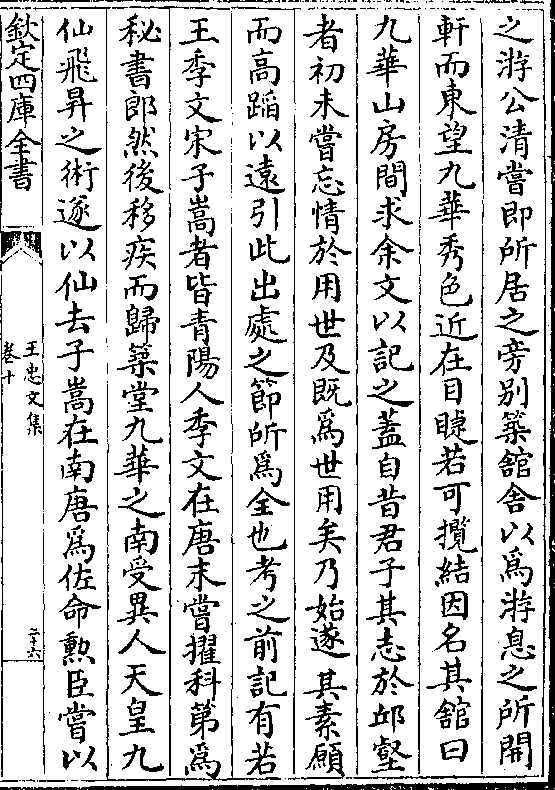 之游公清嘗即所居之旁别築舘舍以為游息之所開
軒而東望九華秀色近在目睫若可攬結因名其舘曰
九華山房間求余文以記之蓋自昔君子其志於邱壑
者初未嘗忘情於用世及既為世用矣乃始遂其素願
而高蹈以遠引此出處之節所為全也考之前記有若
王季文宋子嵩者皆青陽人季文在唐末嘗擢科第為
秘書郎然後移疾而歸築堂九華之南受異人天皇九
仙飛昇之術遂以仙去子嵩在南唐為佐命勲臣嘗以
欽定四庫全書
王忠文集
卷十
二十六